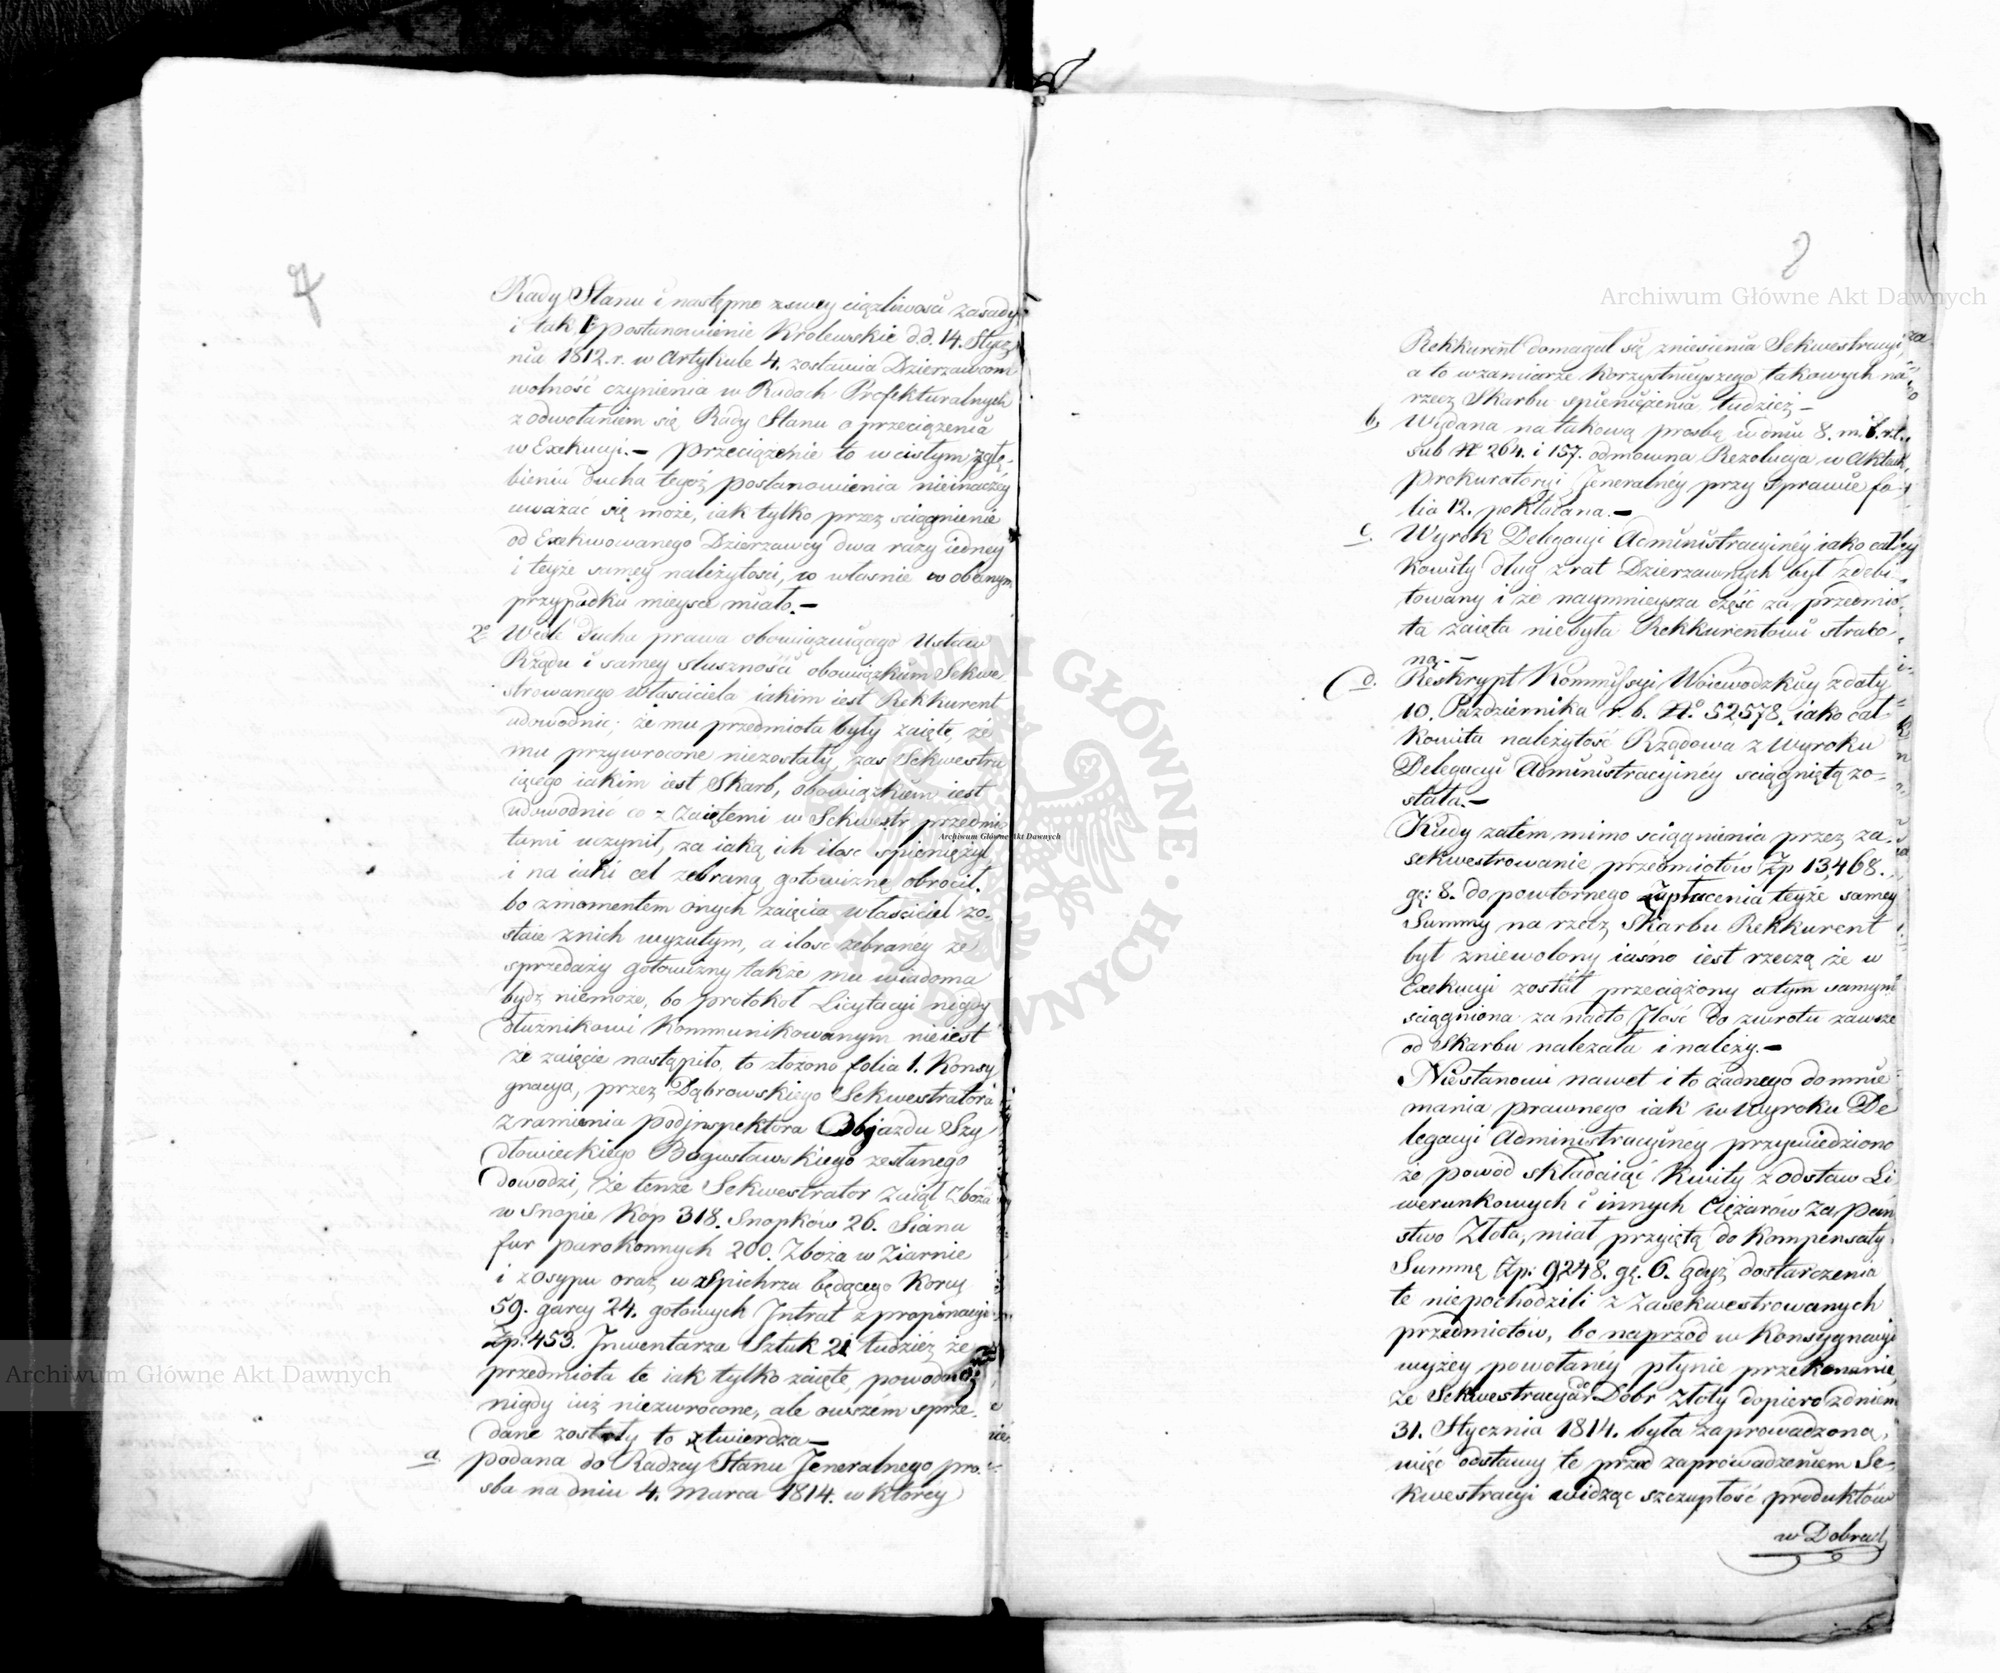 7
Rady Stanu i następne zswey ciążliwości zasady
i tak postanowienie Krolewskie d.d. 14. Stycz
nia 1812. r. w Artykule 4. zostawia Dzierzawcom
wolność czynienia w Radach Prefekturalnych
z odwołaniem się Rady Stanu o przeciążenia
w Exekucyi.— przeciążenie to w cisłym zgłę-
bieniu ducha tegoż postanowienia nieinaczey
uważać się może, iak tylko przez sciągnienie
od Exekwowanego Dzierzawcy dwa razy iedney
i teyże samey należytości, co własnie w obecnym
przypadku mieysce miało.—
2o Wedle Ducha prawa obowiązuiącego Ustaw
Rządu i samey słuszności obowiązkiem Sekwe
strowanego własciciela iakim iest Rekkurent
udowodnić, że mu przedmiota były zaięte że
mu przywrocone niezostały, zas Sekwestru
iącego iakim iest Skarb, obowiązkiem iest
udowodnić co z zaiętemi w Sekwestr przedmio
tami uczynił, za iaką ich ilosc spieniężył
i na iaki cel zebraną gotowiznę obrocił.
bo zmomentem onych zaięcia własciciel zo-
staie znich wyzutym, a ilosc zebraney ze
sprzedaży gotowizny także mu wiadoma
bydz niemoże, bo protokoł Licytacyi nigdy
dłużnikowi kommunikowanym nieiest
że zaięcie nastąpiło, to złożono folia 1. Konsy
gnacya, przez Dąbrowskiego Sekwestratora
z ramienia podinspektora Objazdu Szy
dłowieckiego Bogusławskiego zesłanego
dowodzi, że tenże Sekwestrator zaiął Zboża
w Snopie Kóp 318. Snopków 26. Siana
fur parokonnych 200. Zboża w Ziarnie
i zosypu oraz w Spichrzu będącego Korcy
59. garcy 24. gotowych Intrat z propinacyi
Zp: 453. Inwentarza Sztuk 21 tudzież że
przedmiota te iak tylko zaięte, powodowi
nigdy iuż niezwrocone, ale owszem sprze-
dane zostały to stwierdza—
a. podana do Radzcy Stanu Jeneralnego pro-
sba na dniu 4. Marca 1814. w którey
8
Rekkurent domagał się zniesienia Sekwestracyi,
a to wzamiarze korzystnieyszego takowych na
rzecz Skarbu spieniężenia, tudzież—
b. Wydana na takową prosbę w dniu 8. m.
sub N 264. i 157. odmowna Rezolucya w Aktach
Prokuratoryi Jeneralney przy sprawie fo-
lia 12. pokładana.—
c. Wyrok Delegacyi Administracyiney iako cał-
kowity dług z rat Dzierzawnych był zdebi-
towany i że naymnieysza część za przedmio-
ta zaięta niebyła Rekkurentowi strąco-
ną.—
d. Reskrypt Kommissyi Woiewodzkiey z daty
10. Października r. b. No 52578. iako cał-
kowita należytość Rządowa z Wyroku
Delegacyi Administracyiney sciągniętą zo-
stała.—
Kiedy zatem mimo sciągnienia przez za-
sekwestrowanie przedmiotów Zp 13,468.
gr: 8. do powtornego zapłacenia teyże samey
Summy na rzecz Skarbu Rekkurent
był zniewolony iasno iest rzeczą że w
Exekucyi został przeciążony a tym samym
sciągniona za nadto Ilość do zwrotu zawsze
od Skarbu należała i należy.—
Niestanowi nawet i to żadnego domnie
mania prawnego iak w wyroku De
legacyi Administracyiney przywiedziono
że powód składaiąc Kwity z odstaw Li
werunkowych i innych Ciężarów za Pań
stwo Złota, miał przyiętą do Kompensaty
Summę Zp: 9248. gr. 6. gdyż dostarczenia
te niepochodzili z Zasekwestrowanych
przedmiotów, bo naprzód w Konsygnacyi
wyżey powołaney płynie przekonanie,
że Sekwestracya do Dobr Złoty dopiero z dniem
31. Stycznia 1814. była zaprowadzoną,
więc odstawy te przed zaprowadzeniem Se-
kwestracyi widząc szczupłość produktów
w Dobrach
Archiwum Główne Akt Dawnych
Archiwum Główne Akt Dawnych
Archiwum Główne Akt Dawnych